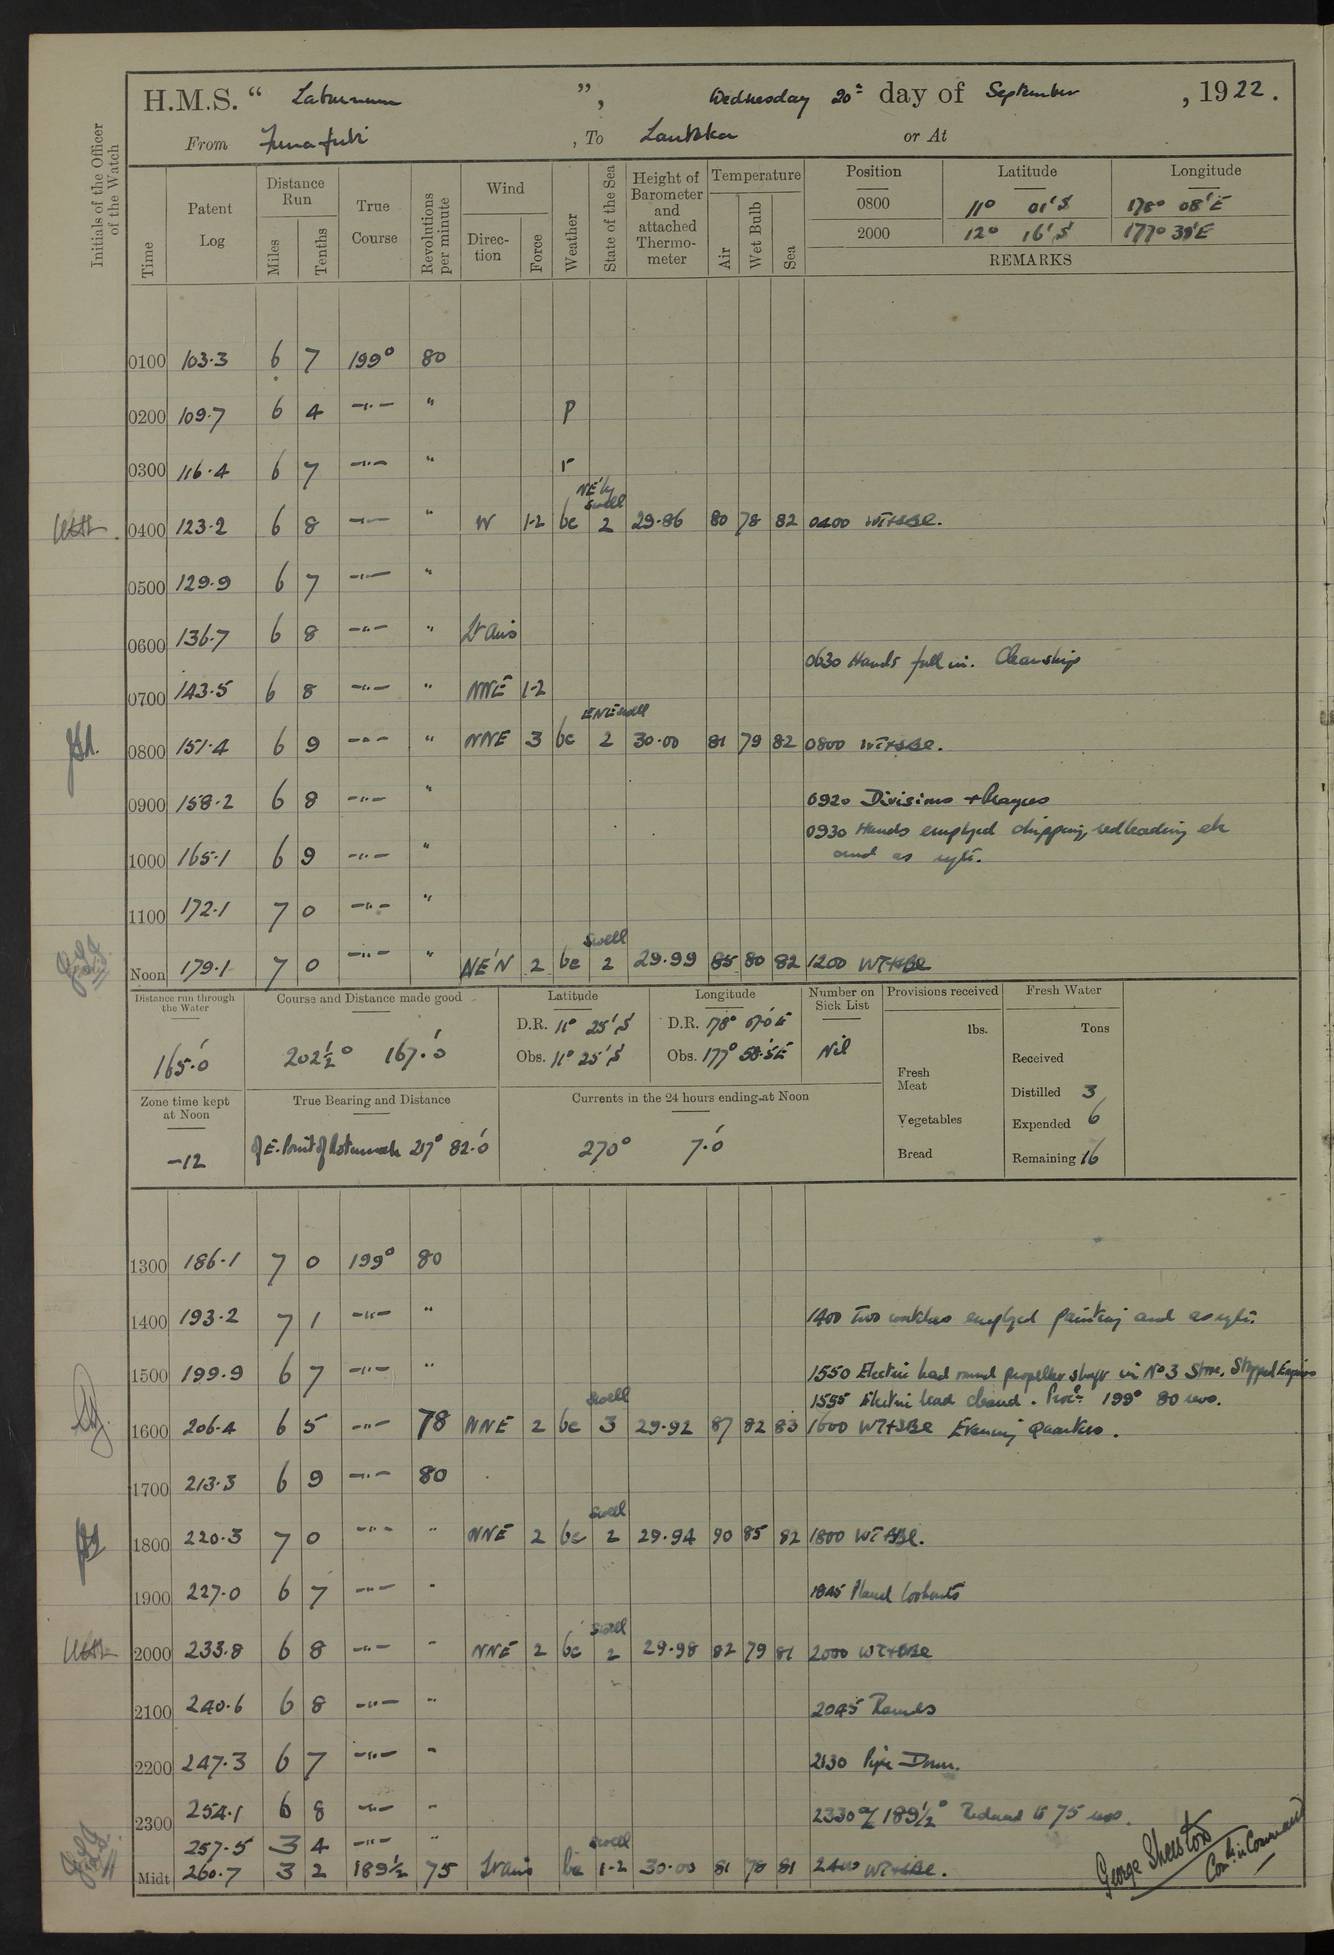 H.M.S. " Laburnum ", Wednesday 20th day of September, 1922.
From Funafuti, To Lautoka or At
Initials of the Officer of the Watch
Time
Patent Log
Distance Run
Miles
Tenths
True Course
Revolutions per minute
Wind
Direction
Force
Weather
State of the Sea
Height of Barometer and attached Thermometer
Temperature
Air
Wet Bulb
Sea
Position Latitude Longitude
0800 11° 01' S 178° 08' E
2000 12° 16' S 177° 38' E
REMARKS
0100 103.3 6 7 199° 80
0200 109.7 6 4 —"— " p
0300 116.4 6 7 —"— " r
NE'ly swell
0400 123.2 6 8 —"— " W 1-2 bc 2 29.86 80 78 82 0400 WT+SBl.
0500 129.9 6 7 —"— "
0600 136.7 6 8 —"— " Lt airs
0630 Hands fell in. Clean ship
0700 143.5 6 8 —"— " NNE 1-2
ENE swell
0800 151.4 6 9 —"— " NNE 3 bc 2 30.00 81 79 82 0800 WT+SBl.
0900 158.2 6 8 —"— " 0920 Divisions + Prayers
0930 Hands employed chipping, redleading etc
1000 165.1 6 9 —"— " and as reqte.
1100 172.1 7 0 —"— "
swell
Noon 179.1 7 0 —"— " NE'N 2 bc 2 29.99 85 80 82 1200 WT+SBl
Distance run through the Water
165.0'
Course and Distance made good
202½° 167.0'
Latitude
D.R. 11° 25' S
Obs. 11° 25' S
Longitude
D.R. 178° 07.0 E
Obs. 177° 58.5 E
Number on Sick List
Nil
Provisions received
lbs.
Fresh Meat
Vegetables
Bread
Fresh Water
Tons
Received
Distilled 3
Expended 6
Remaining 16
Zone time kept at Noon
-12
True Bearing and Distance
of E. Point of Rotumah 217° 82.0'
Currents in the 24 hours ending at Noon
270° 7.0'
1300 186.1 7 0 199° 80
1400 193.2 7 1 —"— " 1400 Two watches employed painting and as reqte.
1500 199.9 6 7 —"— " 1550 Electric lead round propeller shaft in No 3 Store. Stopped Engines
1555 Electric lead cleared. Procd. 199° 80 revs.
swell
1600 206.4 6 5 —"— 78 NNE 2 bc 3 29.92 87 82 83 1600 WT+SBl Evening Quarters.
1700 213.3 6 9 —"— 80
swell
1800 220.3 7 0 —"— " NNE 2 bc 2 29.94 90 85 82 1800 WT+SBl.
1900 227.0 6 7 —"— " 1845 Placed lookouts
swell
2000 233.8 6 8 —"— " NNE 2 bc 2 29.98 82 79 81 2000 WT+SBl
2100 240.6 6 8 —"— " 2045 Rounds
2200 247.3 6 7 —"— " 2130 Pipe Down.
2300 254.1 6 8 —"— " 2330 a/c 189½° Reduced to 75 revs.
257.5 3 4 —"— "
swell
Midt 260.7 3 2 189½ 75 Lt airs bc 1-2 30.00 81 78 81 2400 WT+SBl.